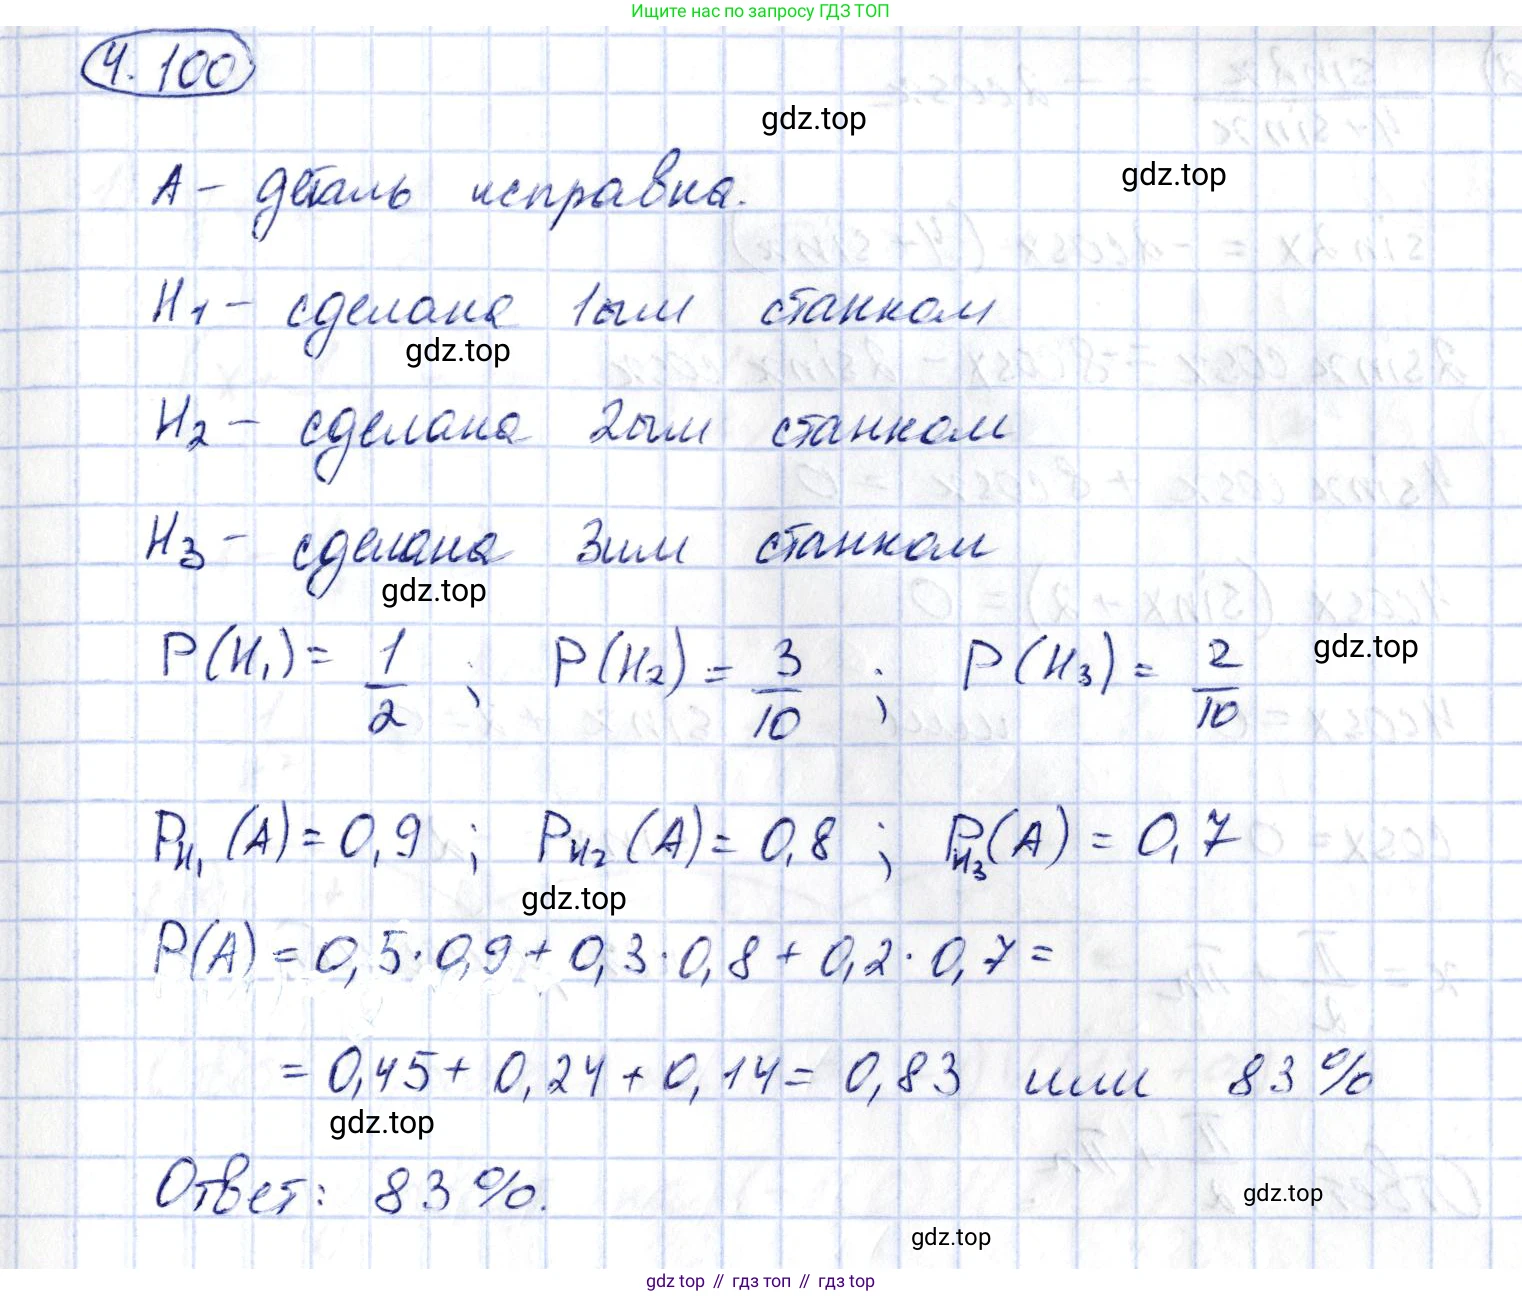 Ищите нас по запросу ГДЗ ТОП
4.100
gdz.top
gdz.top
A – деталь исправна.
H₁ – сделана 1ым станком
gdz.top
H₂ – сделана 2ым станком
H₃ – сделана 3им станком
gdz.top
P(H₁) = 1/2 ; P(H₂) = 3/10 ; P(H₃) = 2/10
gdz.top
P_H₁(A) = 0,9 ; P_H₂(A) = 0,8 ; P_H₃(A) = 0,7
gdz.top
P(A) = 0,5·0,9 + 0,3·0,8 + 0,2·0,7 =
= 0,45 + 0,24 + 0,14 = 0,83 или 83%
gdz.top
Ответ: 83%.
gdz.top
gdz.top
gdz top // гдз топ // гдз top